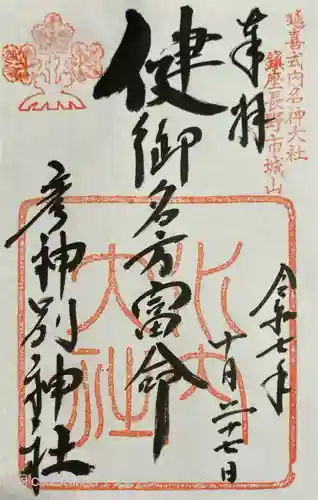 延喜式内名神大社
鎮座長野市城山
奉拝
令和七年
十月二十七日
健御名方富命
彦神別神社
式内
大社